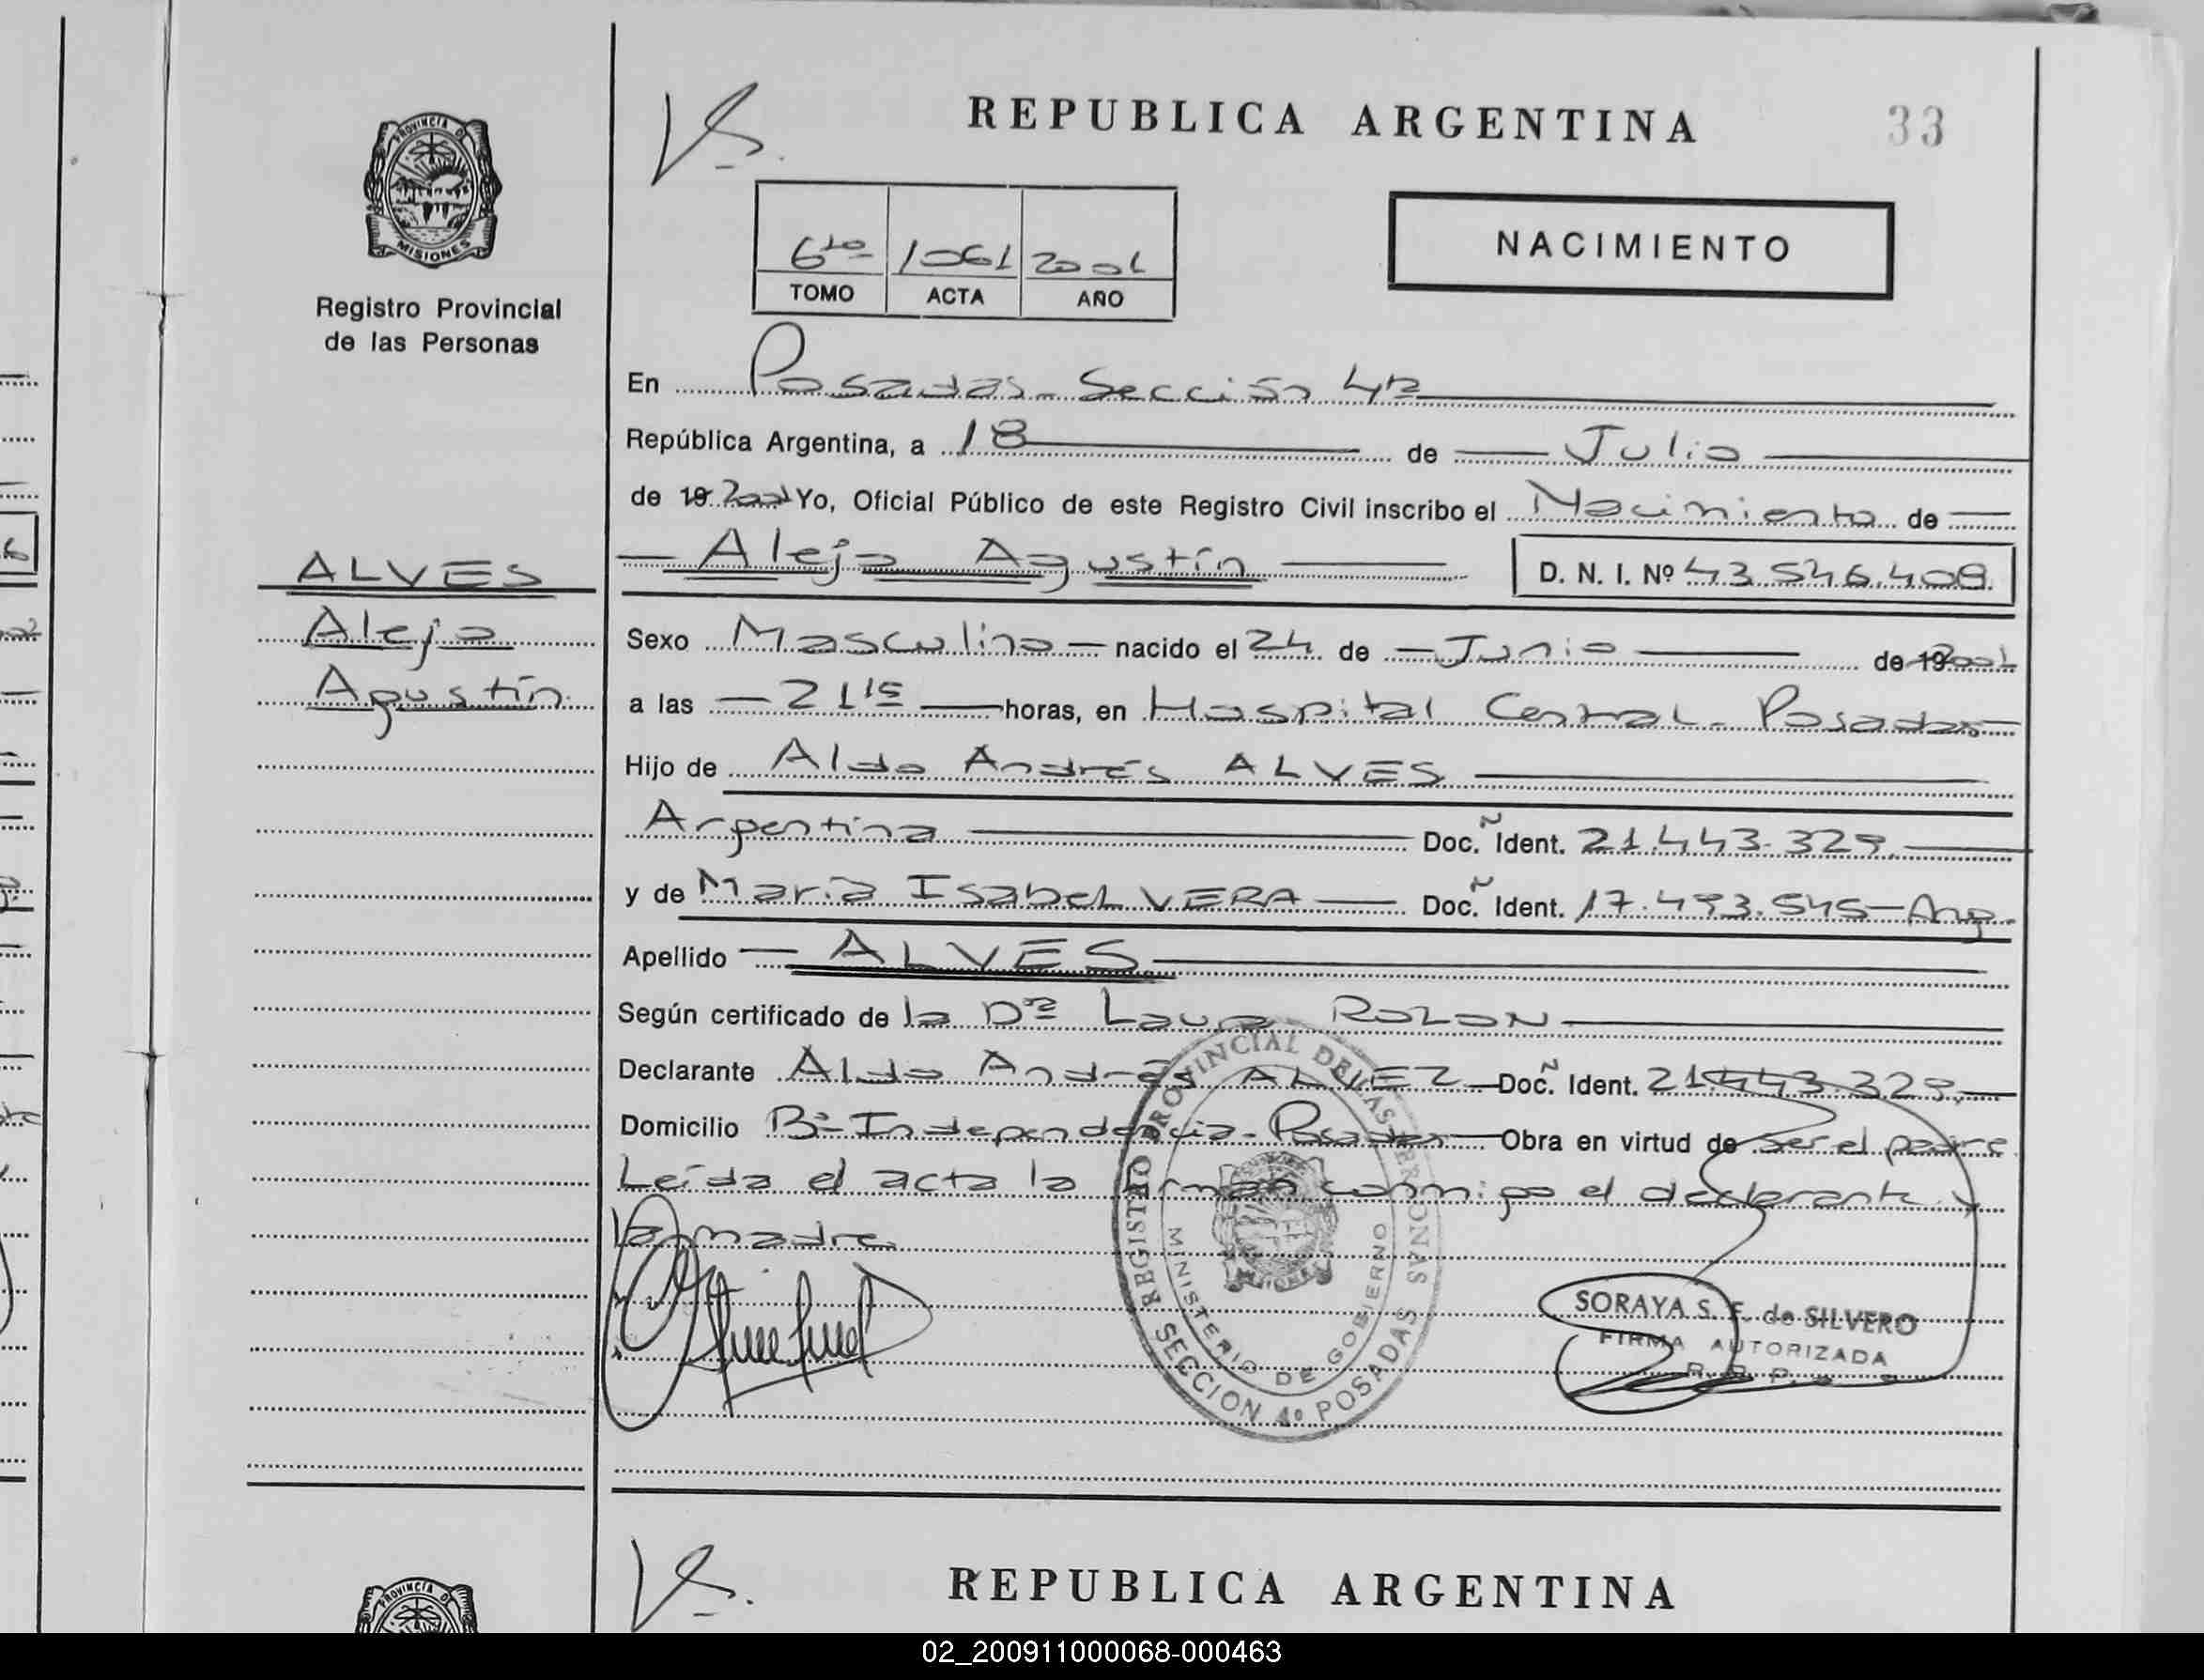 REPUBLICA ARGENTINA
33
PROVINCIA D
MISIONES
Registro Provincial
de las Personas
6to 1061 2001
TOMO ACTA AÑO
NACIMIENTO
En Posadas - Sección 4ta
República Argentina, a 18 de Julio
de 19 2001 Yo, Oficial Público de este Registro Civil inscribo el Nacimiento de
ALVES
Alejo
Agustín
Alejo Agustín D. N. I. Nº 43.546.408
Sexo Masculino nacido el 24 de Junio de 19 2001
a las 21 15 horas, en Hospital Central - Posadas
Hijo de Aldo Andrés ALVES
Argentina Doc. Ident. 21.443.329
y de María Isabel VERA Doc. Ident. 17.493.545 - Arg.
Apellido ALVES
Según certificado de la Dra Laura ROLON
Declarante Aldo Andrés ALVEZ Doc. Ident. 21.443.329
Domicilio Bº Independencia - Posadas Obra en virtud de ser el padre
Leída el acta la firman conmigo el declarante y
la madre
REGISTRO PROVINCIAL DE LAS PERSONAS
MINISTERIO DE GOBIERNO
SECCION 4º POSADAS
SORAYA S. F. de SILVERO
FIRMA AUTORIZADA
R. P. P.
REPUBLICA ARGENTINA
PROVINCIA D
02_200911000068-000463